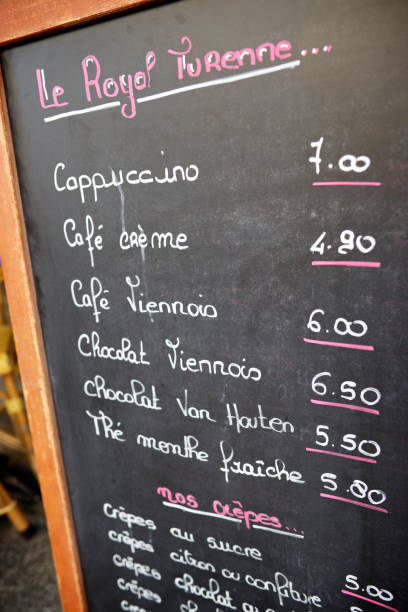 Le Royal Turenne...
Cappuccino 7.00
Café crème 4.90
Café Viennois 6.00
Chocolat Viennois 6.50
chocolat Van Houten 5.50
Thé menthe fraîche 5.80
nos crêpes...
crêpes au sucre 5.00
crêpes citron ou confiture
crêpes chocolat au
crêpes